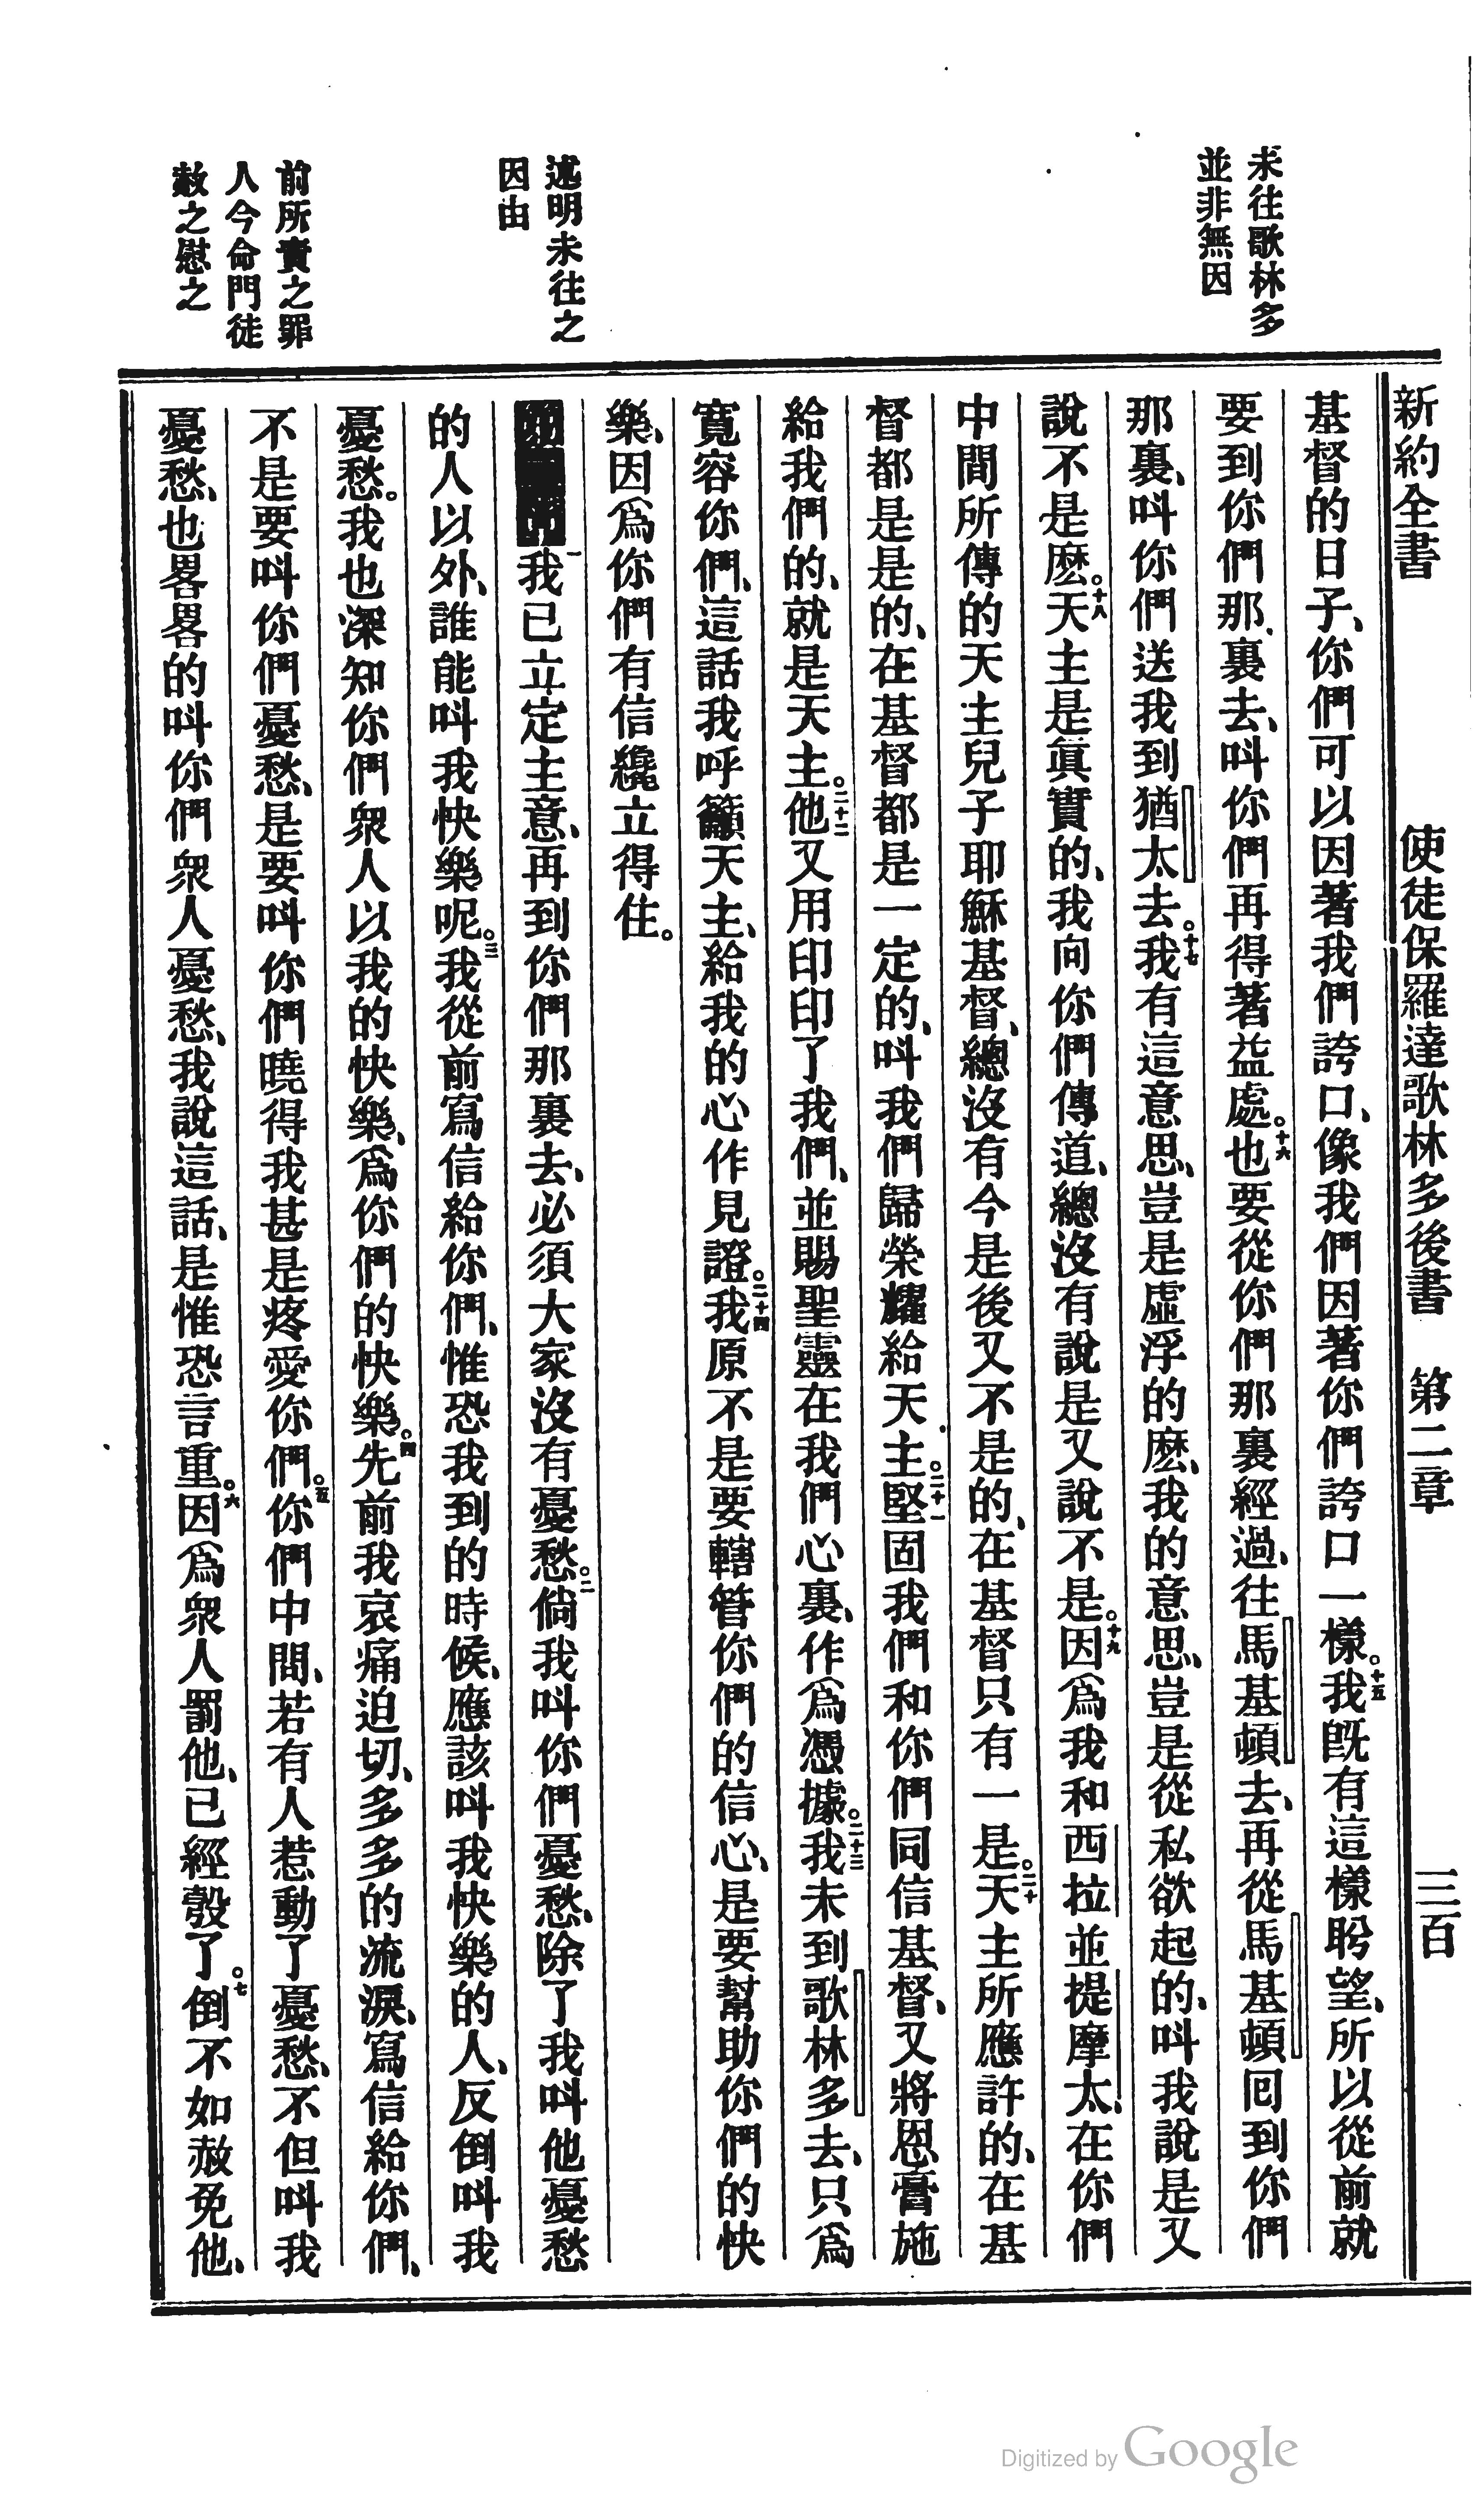 新約全書 使徒保羅達歌林多後書 第二章 三百
未往歌林多
並非無因
述明未往之
因由
前所責之罪
人今命門徒
赦之慰之
基督的日子、你們可以因著我們誇口、像我們因著你們誇口一樣。十五我旣有這樣盼望、所以從前就
要到你們那裏去、叫你們再得著益處。十六也要從你們那裏經過、往馬基頓去、再從馬基頓囘到你們
那裏、叫你們送我到猶太去。十七我有這意思、豈是虛浮的麽、我的意思、豈是從私欲起的、叫我說是又
說不是麽。十八天主是眞實的、我向你們傳道、總沒有說是又說不是。十九因爲我和西拉並提摩太、在你們
中間所傳的天主兒子耶穌基督、總沒有今是後又不是的、在基督只有一是。二十天主所應許的、在基
督都是是的、在基督都是一定的、叫我們歸榮耀給天主。二十一堅固我們和你們同信基督、又將恩膏施
給我們的、就是天主。二十二他又用印印了我們、並賜聖靈在我們心裏、作爲憑據。二十三我未到歌林多去、只爲
寬容你們、這話我呼籲天主、給我的心作見證。二十四我原不是要轄管你們的信心、是要幫助你們的快
樂、因爲你們有信纔立得住。
一我已立定主意、再到你們那裏去、必須大家沒有憂愁。二倘我叫你們憂愁、除了我叫他憂愁
的人以外、誰能叫我快樂呢。三我從前寫信給你們、惟恐我到的時候、應該叫我快樂的人、反倒叫我
憂愁。我也深知你們衆人以我的快樂、爲你們的快樂。四先前我哀痛迫切、多多的流淚、寫信給你們、
不是要叫你們憂愁、是要叫你們曉得我甚是疼愛你們。五你們中間、若有人惹動了憂愁、不但叫我
憂愁、也畧畧的叫你們衆人憂愁、我說這話、是惟恐言重。六因爲衆人罰他、已經彀了。七倒不如赦免他、
Digitized by Google